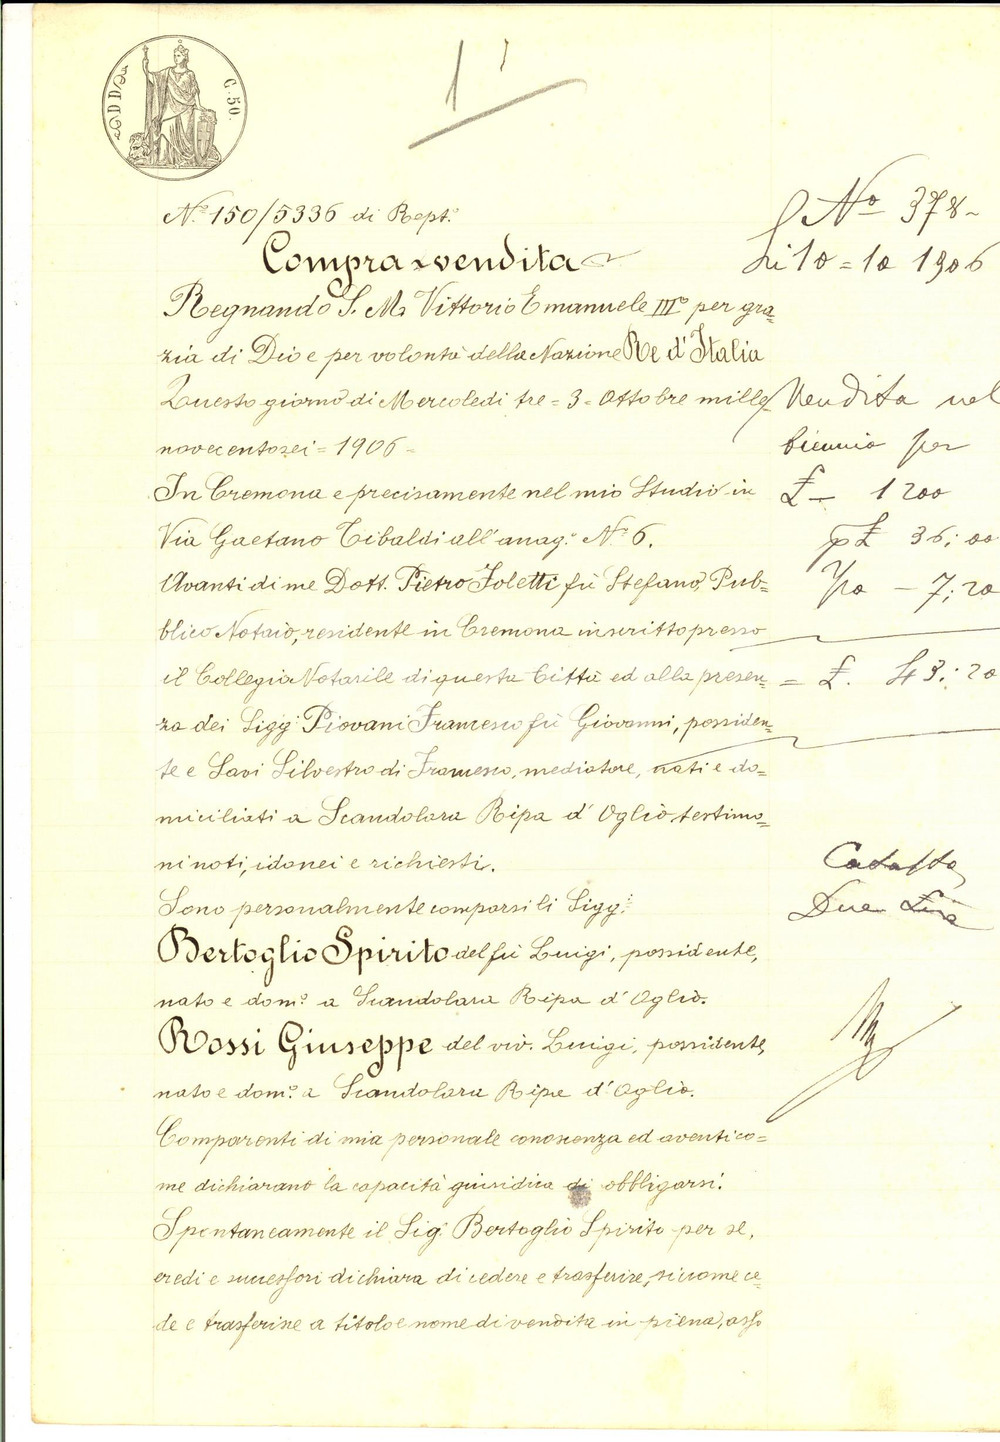 C. 50.
1
N.° 150/5336 di Rept.°
Compra-vendita
Regnando S. M. Vittorio Emanuele III° per gra=
zia di Dio e per volontà della Nazione Re d'Italia
Questo giorno di Mercoledì tre = 3 = Ottobre mille
novecentosei = 1906 =
In Cremona e precisamente nel mio Studio in
Via Gaetano Tibaldi all'anag.° N.° 6.
Avanti di me Dott. Pietro Foletti fù Stefano, Pub=
blico Notaio, residente in Cremona inscritto presso
il Collegio Notarile di questa Città ed alla presen=
za dei Sigg.ri Piovani Francesco fù Giovanni, possiden=
te e Savi Silvestro di Francesco, mediatore, nati e do=
miciliati a Scandolara Ripa d'Oglio, testimo=
ni noti, idonei e richiesti.
Sono personalmente comparsi li Sigg.ri
Bertoglio Spirito del fù Luigi, possidente,
nato e dom.° a Scandolara Ripa d'Oglio.
Rossi Giuseppe del viv. Luigi, possidente,
nato e dom.° a Scandolara Ripa d'Oglio.
Comparenti di mia personale conoscenza ed aventi co=
me dichiarano la capacità giuridica di obbligarsi.
Spontaneamente il Sig. Bertoglio Spirito per sè,
eredi e successori dichiara di cedere e trasferire, siccome ce=
de e trasferisce a titolo e nome di vendita in piena, asso
N° 378-
li 10 = 10 1906
Vendita nel
biennio per
£ - 1200
p £ 36: 00
- 7: 20
= £. 43: 20
Catasto
Due Lire